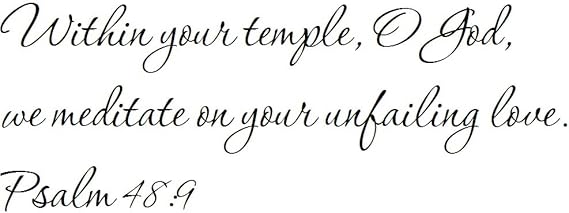 Within your temple, O God,
we meditate on your unfailing love.
Psalm 48:9